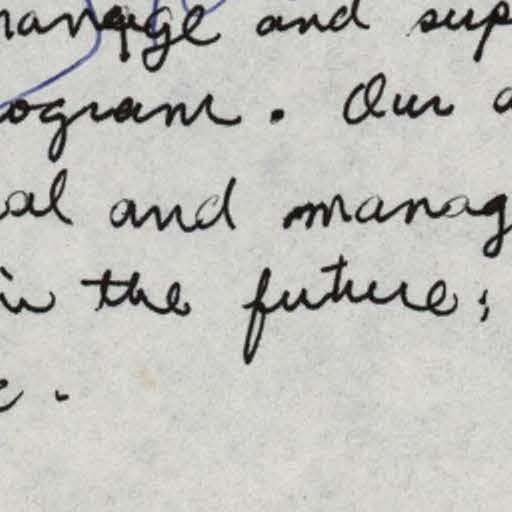 manage and sup
ogram. Our a
al and manag
in the future;
.